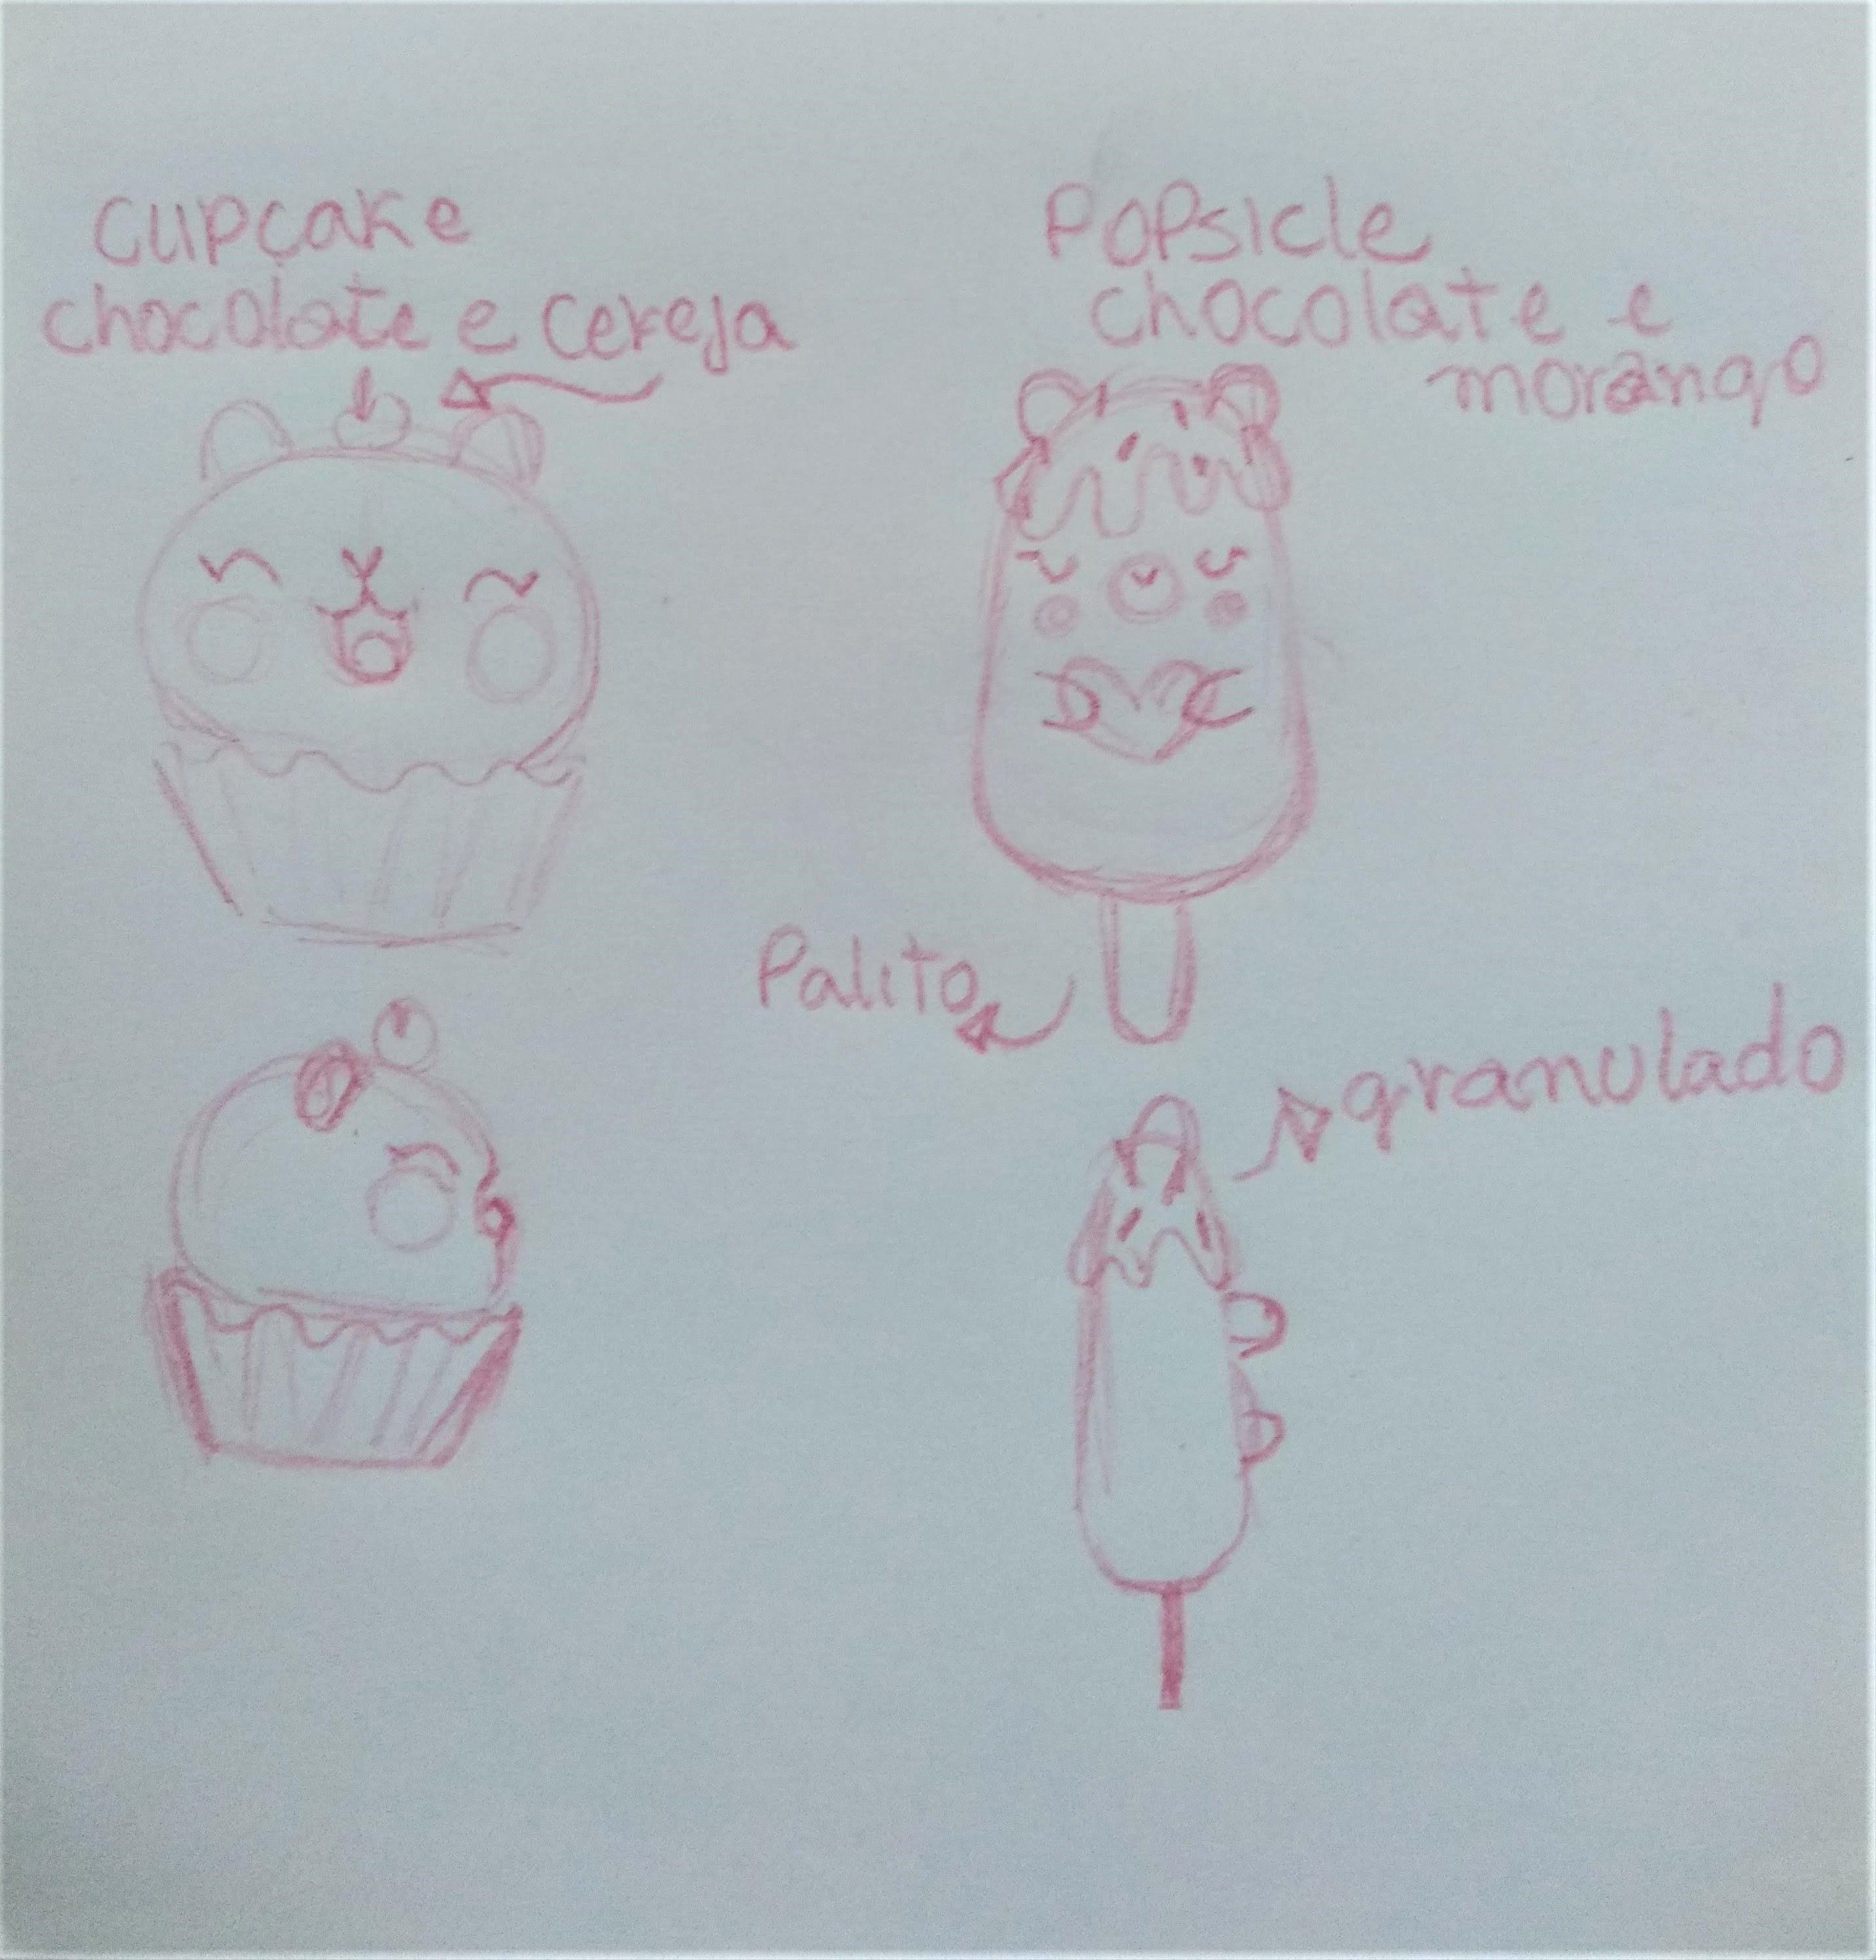 cupcake
chocolate e cereja
Popsicle
chocolate e
morango
Palito
granulado